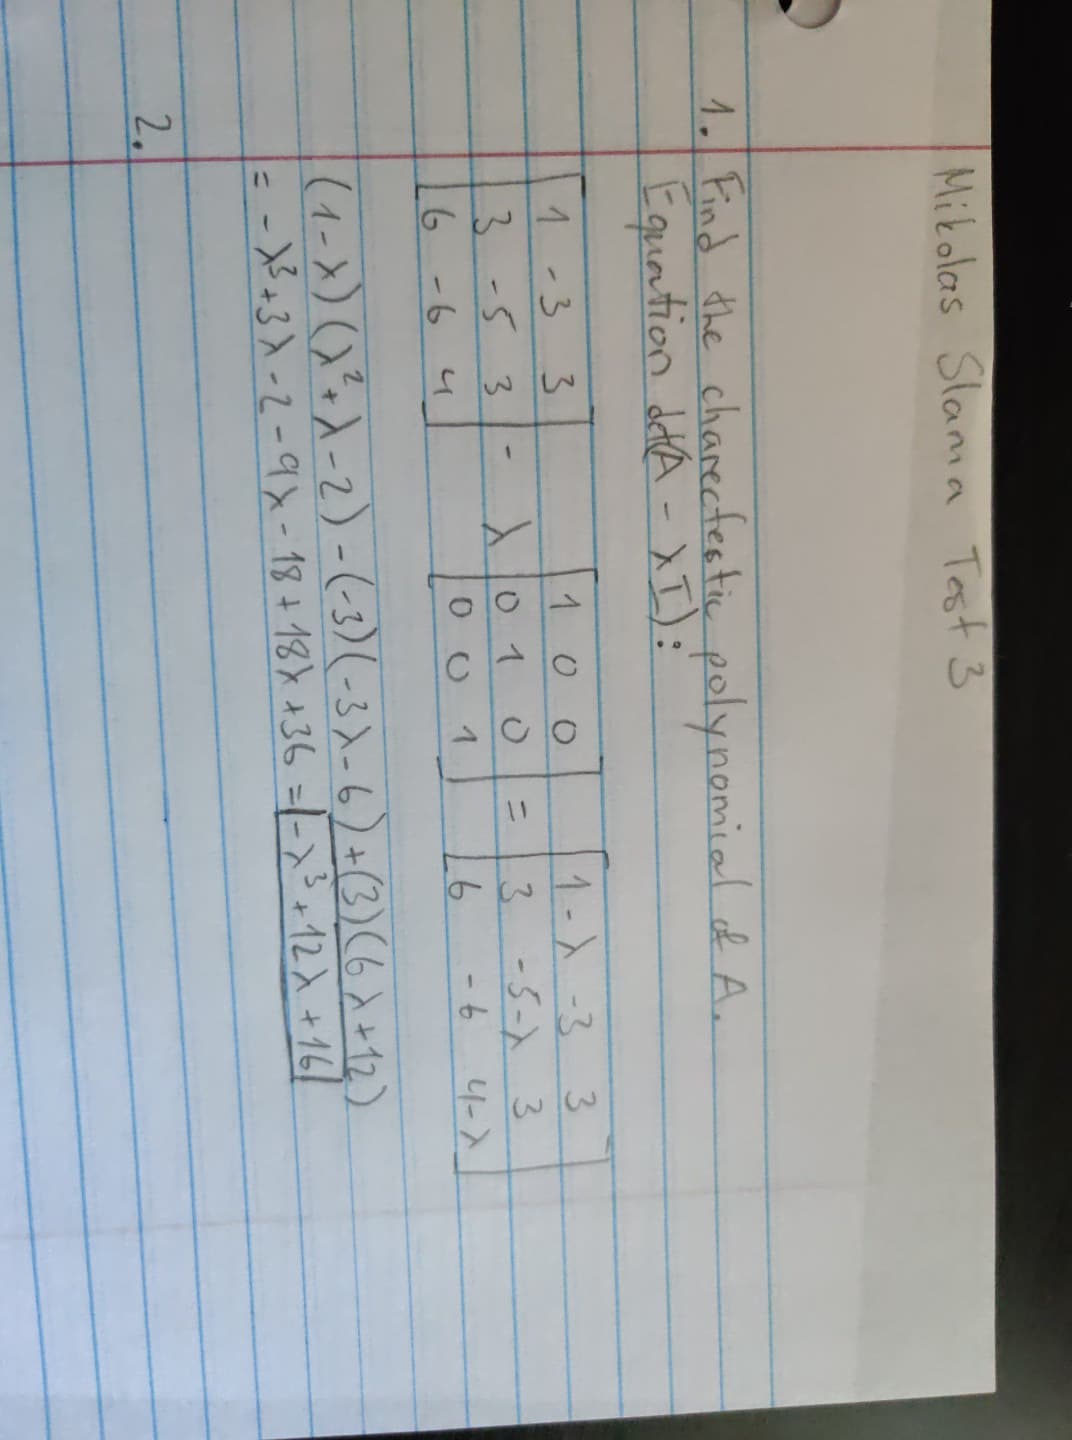 Mikolas Slama Test 3
1. Find the charectestic polynomical of A.
Equation det(A - λI):
[1 -3 3] [1 0 0] [1-λ -3 3]
[3 -5 3] - λ [0 1 0] = [3 -5-λ 3]
[6 -6 4] [0 0 1] [6 -6 4-λ]
(1-λ)(λ²+λ-2)-(-3)(-3λ-6)+(3)(6λ+12)
= -λ³+3λ-2-9λ-18+18λ+36 = -λ³+12λ+16
2.